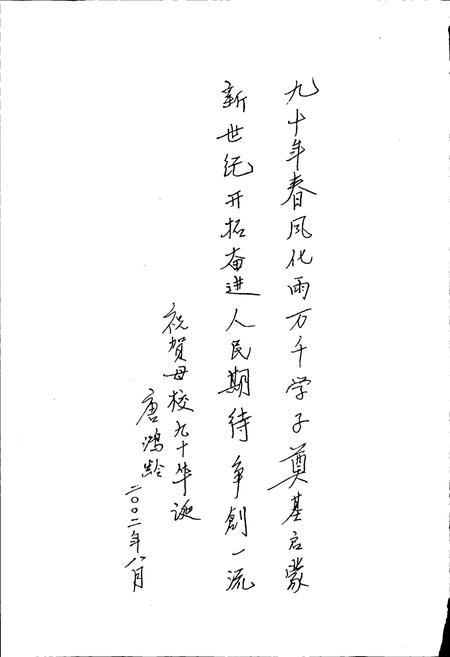 九十年春风化雨万千学子奠基启蒙
新世纪开拓奋进人民期待争创一流
祝贺母校九十华诞
唐鸿龄
二〇〇二年八月